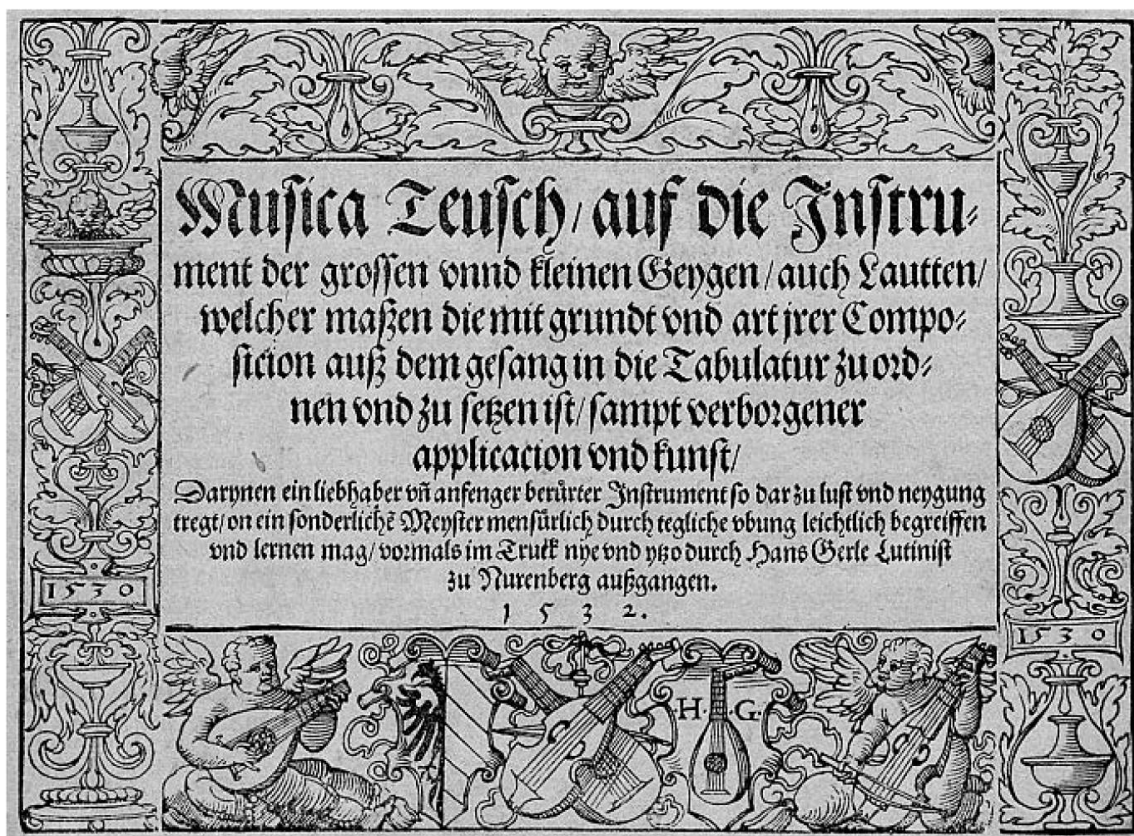 Musica Teusch/ auf die Instru⸗
ment der grossen vnnd kleinen Geygen/ auch Lautten/
welcher maßen die mit grundt vnd art jrer Compo⸗
sicion auß dem gesang in die Tabulatur zu ord⸗
nen vnd zu setzen ist/ sampt verborgener
applicacion vnd kunst/
Darynen ein liebhaber vñ anfenger berürter Instrument so dar zu lust vnd neygung
tregt/ on ein sonderlichẽ Meyster mensürlich durch tegliche vbung leichtlich begreiffen
vnd lernen mag/ vormals im Truck nye vnd ytzo durch Hans Gerle Lutinist
zu Nurenberg außgangen.
1 5 3 2.
1530
1530
H·G·